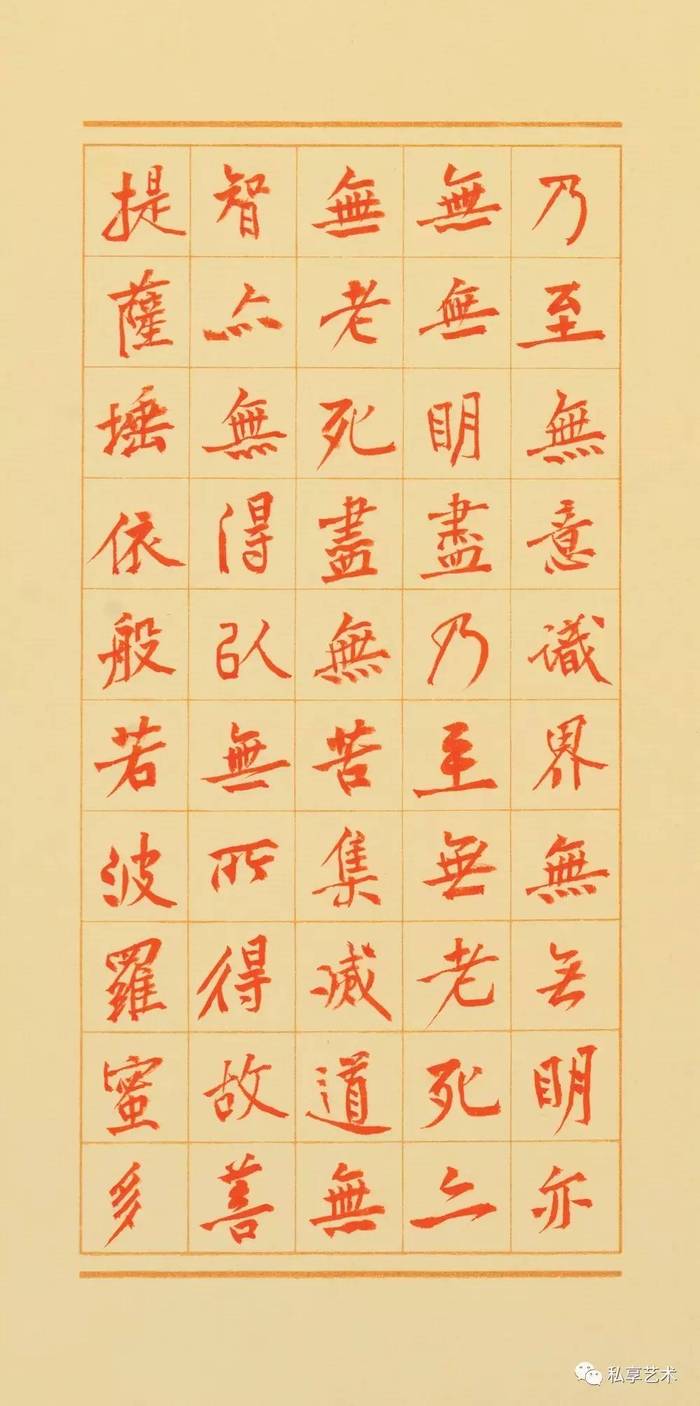 乃至無意識界無無明亦
無無明盡乃至無老死亦
無老死盡無苦集滅道無
智亦無得以無所得故菩
提薩埵依般若波羅蜜多
私享艺术